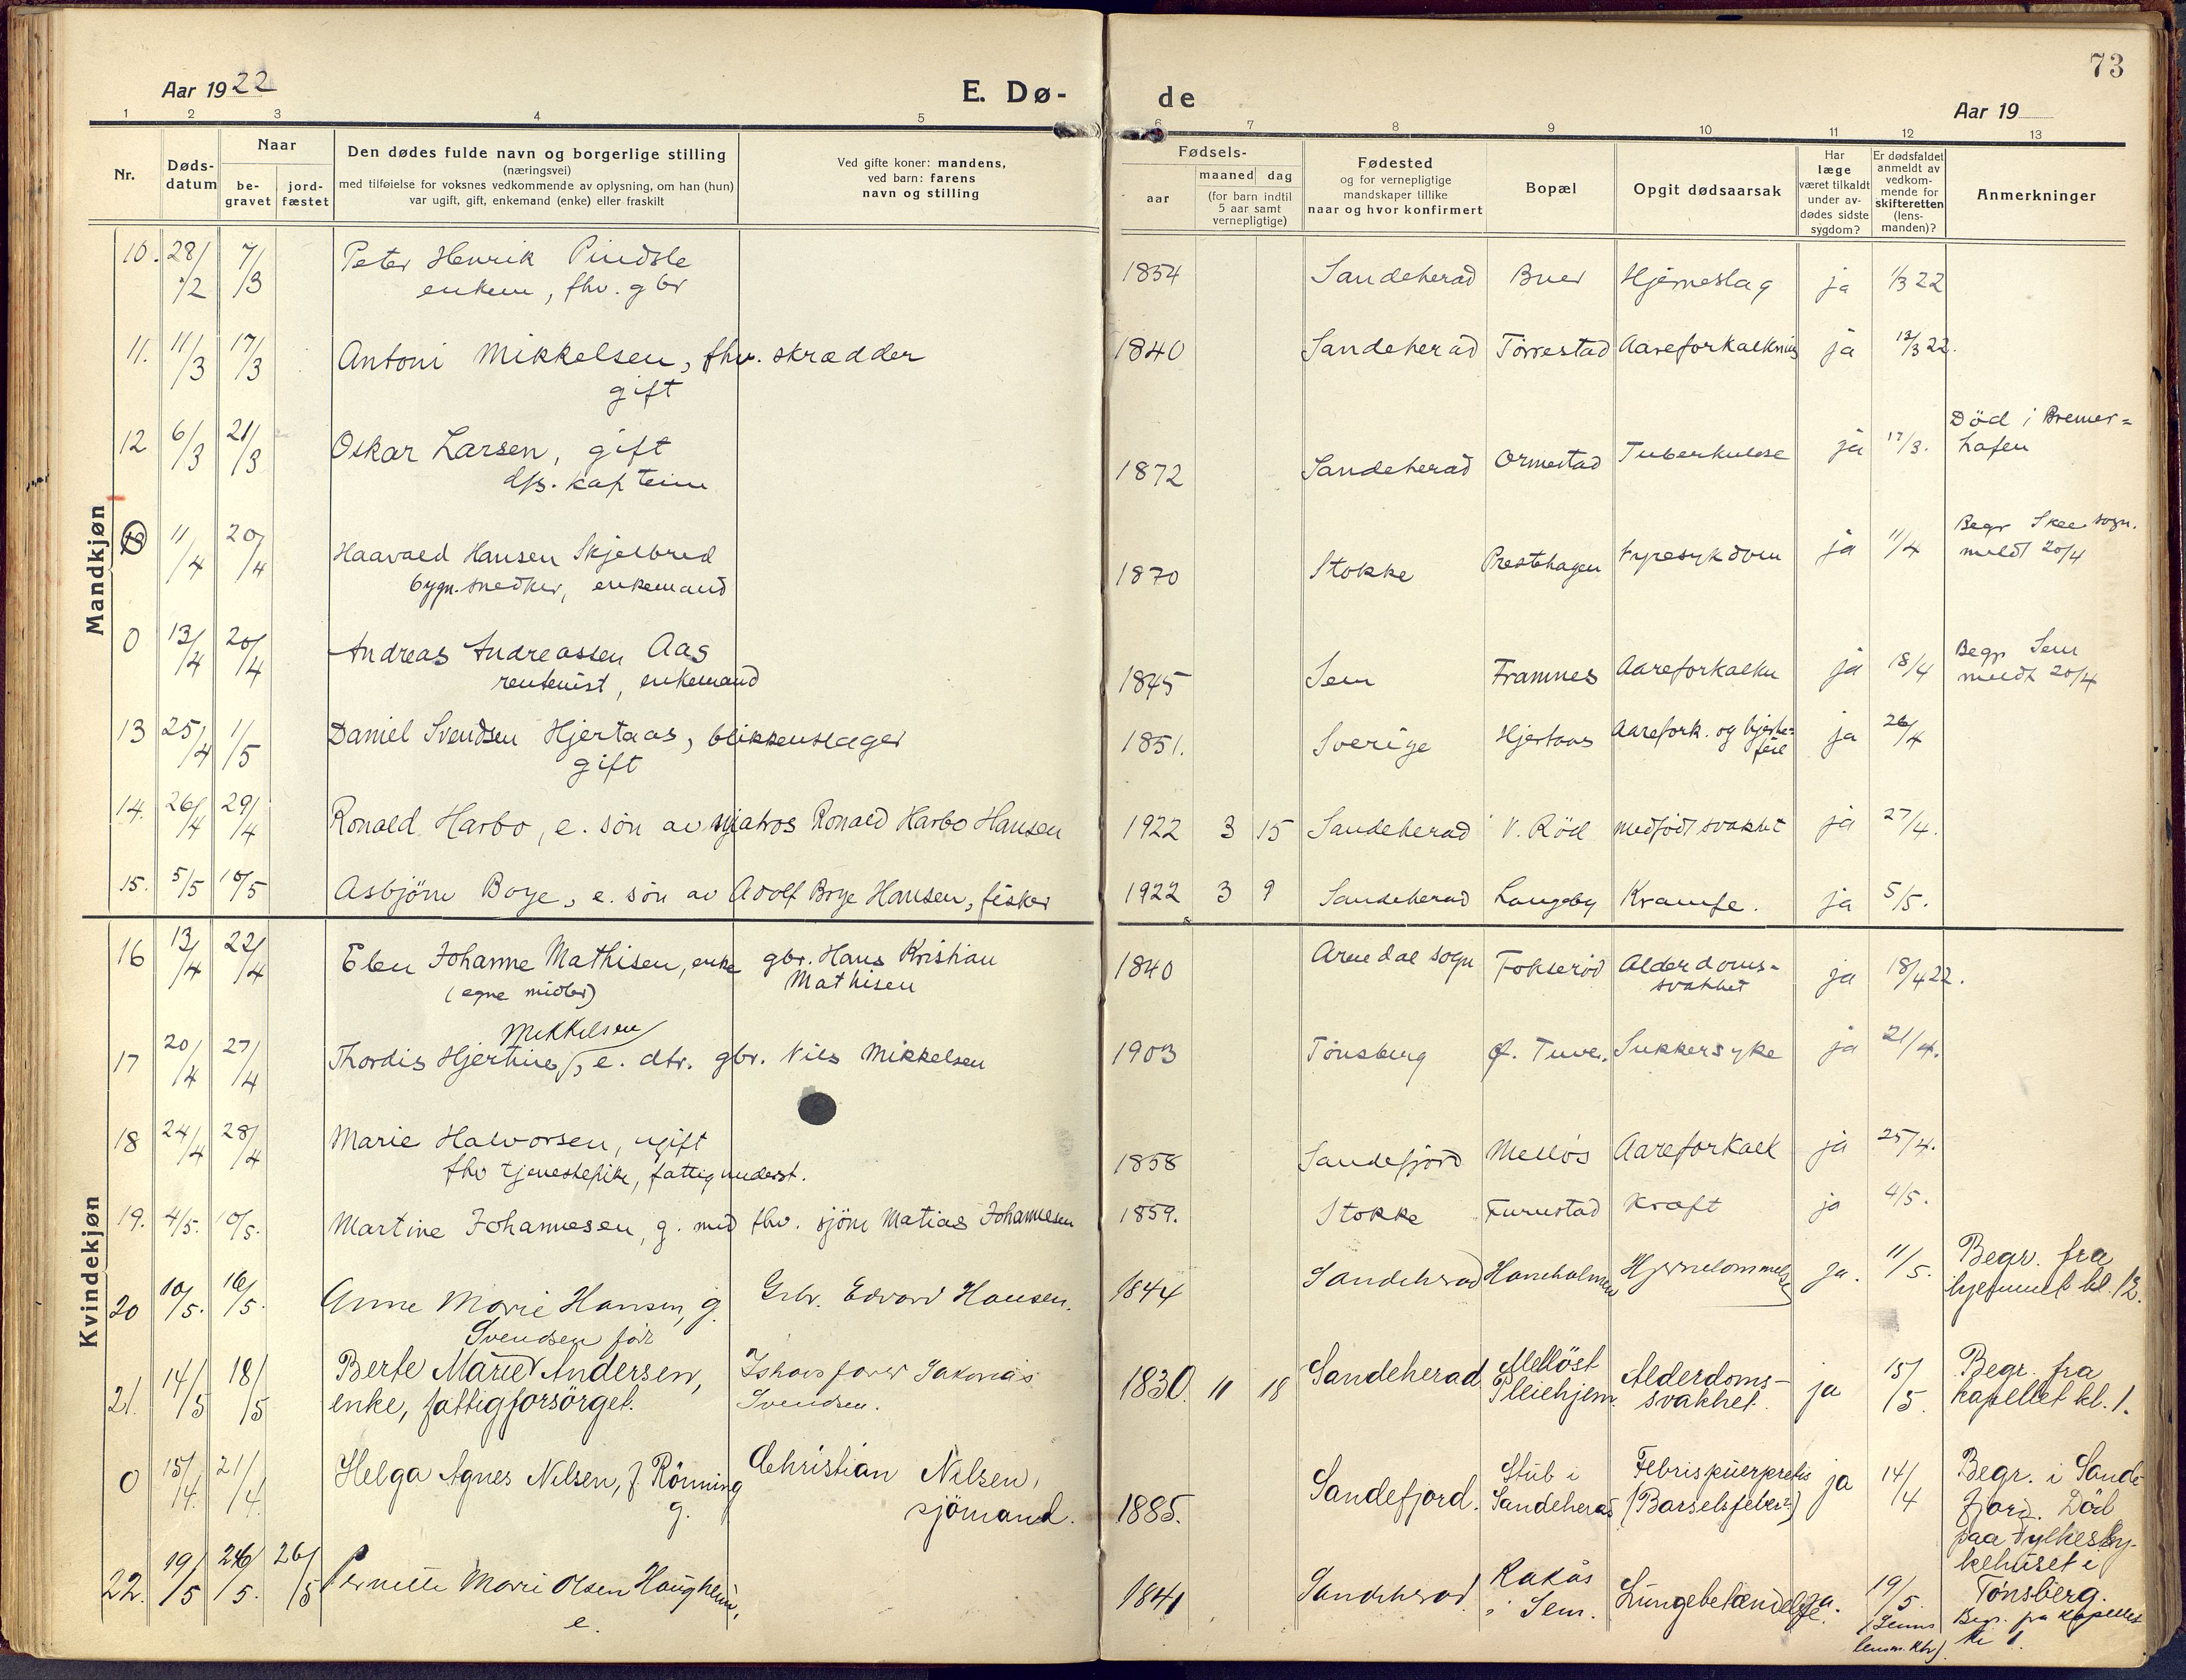 Aar 1922
E. Dø-
de
Aar 19
73
1 2 3 4 5 6 7 8 9 10 11 12 13
Nr.
Døds-
datum
Naar
be-
gravet
jord-
fæstet
Den dødes fulde navn og borgerlige stilling
(næringsvei)
med tilføielse for voksnes vedkommende av oplysning, om han (hun)
var ugift, gift, enkemand (enke) eller fraskilt
Ved gifte koner: mandens,
ved barn: farens
navn og stilling
Fødsels-
aar
maaned dag
(for barn indtil
5 aar samt
vernepligtige)
Fødested
og for vernepligtige
mandskaper tillike
naar og hvor konfirmert
Bopæl
Opgit dødsaarsak
Har
læge
været tilkaldt
under av-
dødes sidste
sygdom?
Er dødsfaldet
anmeldt av
vedkom-
mende for
skifteretten
(lens-
manden)?
Anmerkninger
Mandkjøn
10. 28/2 7/3 Peter Henrik Pindsle 1854 Sandeherad Buer Hjerneslag ja 1/3 22
enkem, fhv. gbr
11. 11/3 17/3 Antoni Mikkelsen, fhv. skrædder 1840 Sandeherad Törrestad Aareforkalkning ja 13/3 22.
gift
12 6/3 21/3 Oskar Larsen, gift 1872 Sandeherad Ormestad Tuberkulose ja 17/3. Död i Bremer=
dfs. kaptein hafen
11/4 20/4 Haavald Hansen Skjelbred 1870 Stokke Prestehagen Nyresykdom ja 11/4 Begr Skee sogn.
bygn.snedker, enkemand meldt 20/4
0 13/4 20/4 Andreas Andreassen Aas 1845 Sem Framnes Aareforkalkn ja 18/4 Begr Sem
rentenist, enkemand meldt 20/4
13 25/4 1/5 Daniel Svendsen Hjertaas, blikkenslager 1851. Sverige Hjertaas Aarefork. og hjerte=
gift feil ja 26/4
14. 26/4 29/4 Ronald Harbo, e. sön av matros Ronald Harbo Hansen 1922 3 15 Sandeherad V. Röd medfödt svakhet ja 27/4.
15. 5/5 10/5 Asbjörn Boye, e. sön av Adolf Boye Hansen, fisker 1922 3 9 Sandeherad Langeby Krampe. ja 5/5.
Kvindekjøn
16 13/4 22/4 Elen Johanne Mathisen, enke gbr. Hans Kristian 1840 Arnedal sogn Fokserød Alderdoms- ja 18/4 22.
(egne midler) Mathisen svakhet
Mikkelsen
17 20/4 27/4 Thordis Hjertine, e. dtr. gbr. Nils Mikkelsen 1903 Tönsberg Ø. Tuver. Sukkersyke ja 21/4.
18 24/4 28/4 Marie Halvorsen, ugift 1858 Sandefjord Mellös Aareforkalk ja 25/4.
fhv tjenestepike, fattigunderst.
19. 4/5. 10/5. Martine Johannesen, g. med fhv. sjöm Matias Johannesen 1859. Stokke Furustad Kræft ja 4/5.
20 10/5. 16/5. Anne Marie Hansen, g. Grbr. Edvard Hansen. 1844 Sandeherad Haneholmen Hjernelammelse ja. 11/5. Begr. fra
hjemmet kl. 12.
Svendsen för
21. 14/5 18/5 Berte Marie Andersen, Ishavsfarer Jakonias 1830. 11 18 Sandeherad Mellöst Alderdoms- ja 15/5. Begr. fra
enke, fattigforsörget. Svendsen. Pleiehjem. svakhet. kapellet kl. 1.
0 15/4. 21/4. Helga Agnes Nilsen, f Rönning Christian Nilsen, 1885. Sandefjord. Stub i Febris puerperalis ja 14/4 Begr. i Sande
g. sjömand. Sandeherad (Barselsfeber) fjord. Död
paa Fylkessy-
kehuset i
Tönsberg.
22. 19/5 26/5. 26/5 Pernette Marie Olsen Haugheim, 1841 Sandeherad Rakås Lungebetændelse ja. 19/5. Begr. fra kapellet
e. i Sem. (Sems kl 1.
lensm. Ktr).